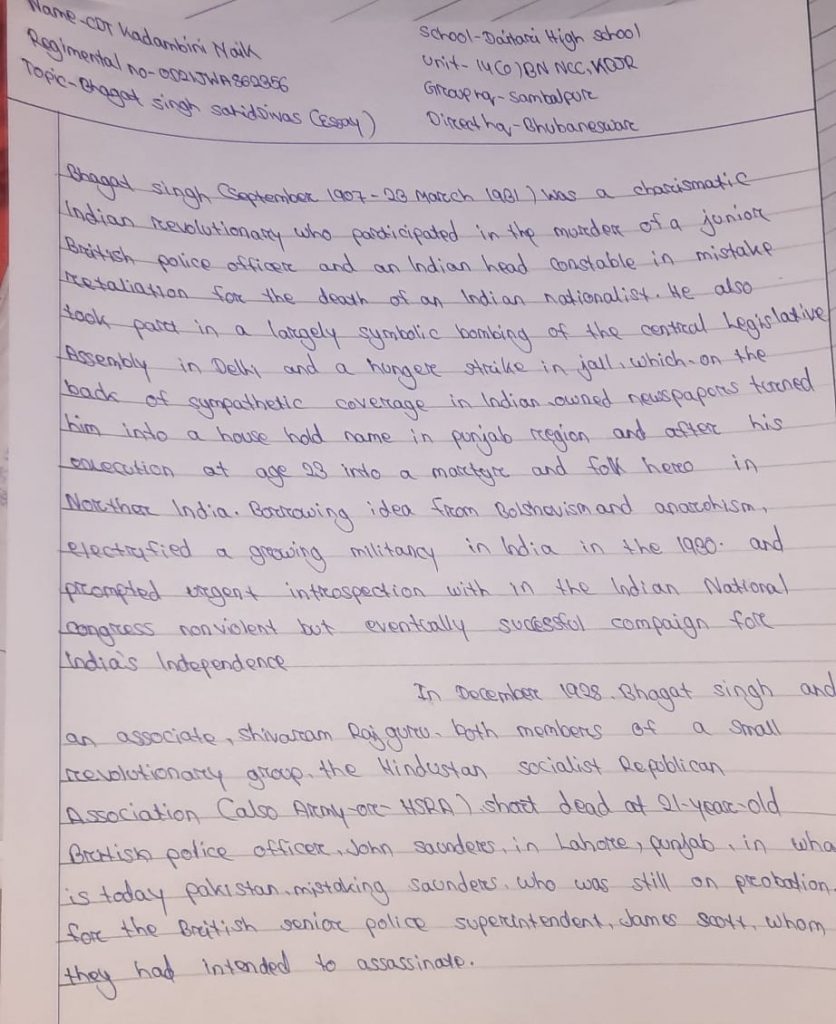 Name-CDT Kadambini Naik
Regimental no-OD21JWA862356
Topic-Bhagat singh sahidDiwas (Essay)
School-Daitari High school
Unit- 14(O)BN NCC, KOJR
Group hq-Sambalpur
Direct hq-Bhubaneswar
Bhagat singh (September 1907-23 March 1931) was a charismatic
Indian revolutionary who participated in the murder of a junior
British police officer and an Indian head constable in mistake
retaliation for the death of an Indian nationalist. He also
took part in a largely symbolic bombing of the central Legislative
Assembly in Delhi and a hunger strike in jail, which-on the
back of sympathetic coverage in Indian-owned newspapors turned
him into a house hold name in punjab region and after his
execution at age 23 into a martyr and folk hero in
Norther India. Borrowing idea from Bolshovism and anarchism,
electrified a growing militancy in India in the 1930. and
prompted urgent introspection with in the Indian National
congress nonviolent but eventcally sucessful campaign for
India's Independence
In December 1928. Bhagat singh and
an associate, Shivaram Rajguru. both members of a small
revolutionary group, the Hindustan socialist Republican
Association (also Army-or-HSRA) short dead at 21-year-old
British police officer, John saunders, in Lahore, punjab, in wha
is today pakistan, mistaking saunders, who was still on probation.
for the British senior police superintendent, James Scott, whom
they had intended to assassinate.